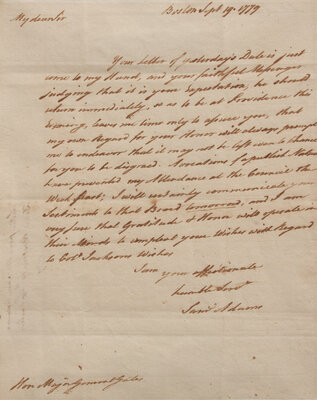 Boston Sept 19. 1779
My dear Sir
Your Letter of yesterdays Date is just
come to my Hand, and your faithful Messenger
judging that it is your Expectation, he should
return immediately, so as to be at Providence this
Evening, leaves me time only to assure you, that
my own Regard for your Honor will always prompt
me to endeavor that it may not be left even a chance
for you to be disgraced. Avocations of a publick Nature
have prevented my Attendance at the Council the
Week past; I will certainly communicate your
Sentiments to that Board tomorrow, and I am
very sure that Gratitude & Honor will operate in
their Minds to compleat your Wishes with Regard
to Colo Jacksons Wishes
I am
your affectionate
humble Servt
Saml Adams
Hon. Major General Gates